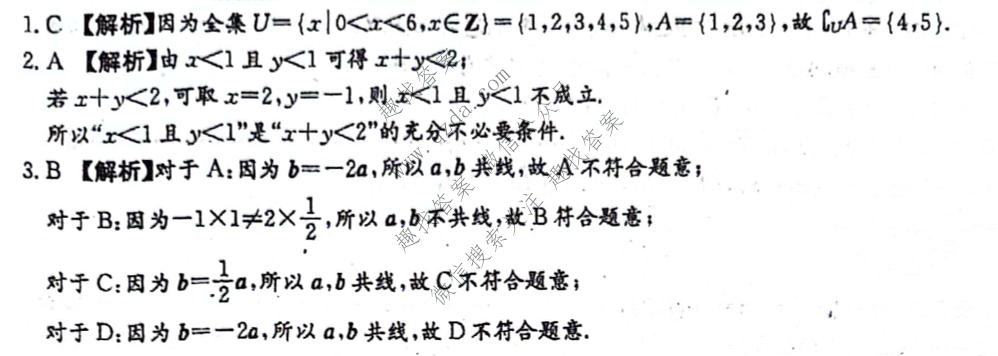 1. C 【解析】因为全集 U={x|0<x<6,x∈Z}={1,2,3,4,5},A={1,2,3},故 ∁UA={4,5}.
2. A 【解析】由 x<1 且 y<1 可得 x+y<2;
若 x+y<2,可取 x=2,y=-1,则 x<1 且 y<1 不成立.
所以“x<1 且 y<1”是“x+y<2”的充分不必要条件.
3. B 【解析】对于 A:因为 b=-2a,所以 a,b 共线,故 A 不符合题意;
对于 B:因为-1×1≠2×1/2,所以 a,b 不共线,故 B 符合题意;
对于 C:因为 b=1/2a,所以 a,b 共线,故 C 不符合题意;
对于 D:因为 b=-2a,所以 a,b 共线,故 D 不符合题意.
趣找答案
趣找答案 微信公众号
微信搜索关注 趣找答案